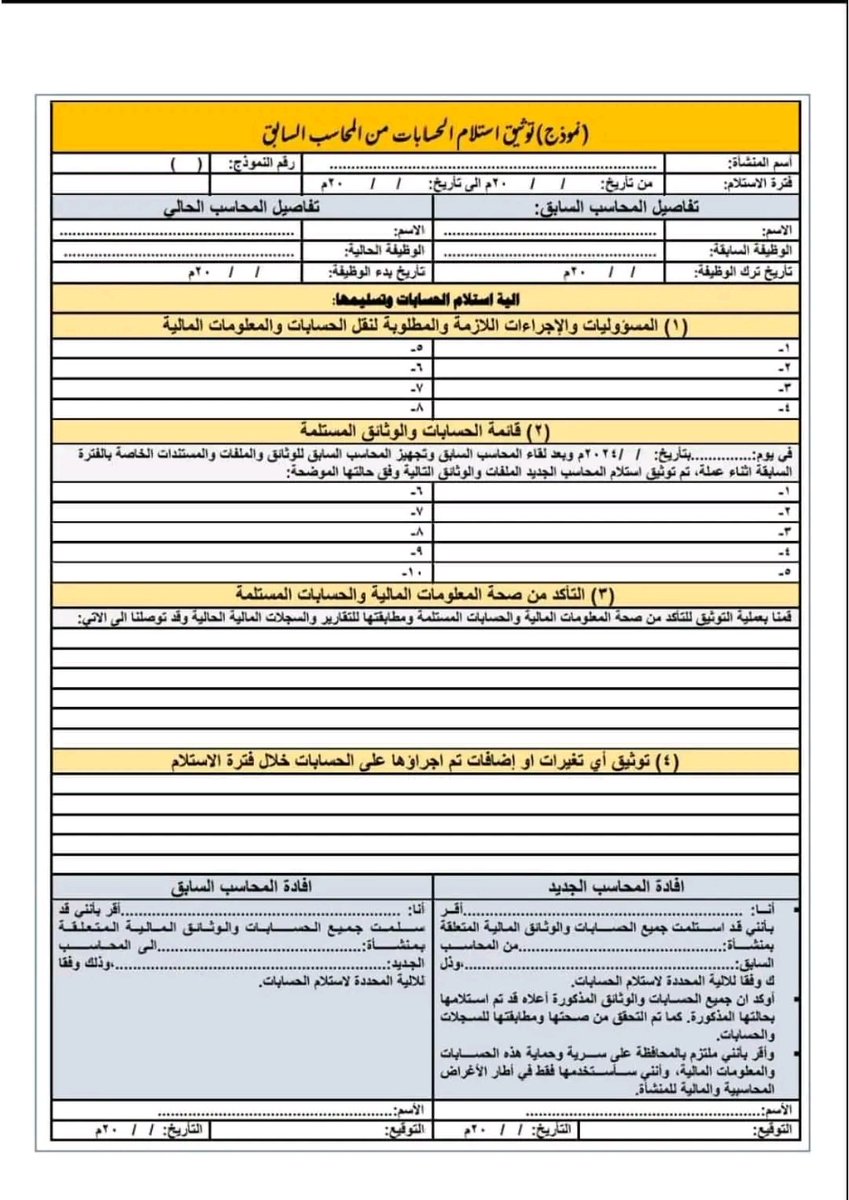 (نموذج) توثيق استلام الحسابات من المحاسب السابق
أسم المنشأة: .................................................................. رقم النموذج: ( )
فترة الاستلام: من تأريخ: / / ٢٠م الى تأريخ: / / ٢٠م
تفاصيل المحاسب السابق: تفاصيل المحاسب الحالي
الاسم: .................................................. الاسم: ..................................................
الوظيفة السابقة: .................................................. الوظيفة الحالية: ..................................................
تأريخ ترك الوظيفة: / / ٢٠م تأريخ بدء الوظيفة: / / ٢٠م
الية استلام الحسابات وتسليمها:
(١) المسؤوليات والإجراءات اللازمة والمطلوبة لنقل الحسابات والمعلومات المالية
١- ٥-
٢- ٦-
٣- ٧-
٤- ٨-
(٢) قائمة الحسابات والوثائق المستلمة
في يوم:..............بتأريخ: / /٢٠٢٤م وبعد لقاء المحاسب السابق وتجهيز المحاسب السابق للوثائق والملفات والمستندات الخاصة بالفترة
السابقة اثناء عملة، تم توثيق استلام المحاسب الجديد الملفات والوثائق التالية وفق حالتها الموضحة:
١- ٦-
٢- ٧-
٣- ٨-
٤- ٩-
٥- ١٠-
(٣) التأكد من صحة المعلومات المالية والحسابات المستلمة
قمنا بعملية التوثيق للتأكد من صحة المعلومات المالية والحسابات المستلمة ومطابقتها للتقارير والسجلات المالية الحالية وقد توصلنا الى الاتي:
(٤) توثيق أي تغيرات او إضافات تم اجراؤها على الحسابات خلال فترة الاستلام
افادة المحاسب الجديد
▪ أنا: ..................................................أقر
بأنني قد استلمت جميع الحسابات والوثائق المالية المتعلقة
بمنشأة:..................................................من المحاسب
السابق:..................................................،وذل
ك وفقا للالية المحددة لاستلام الحسابات.
▪ أوكد ان جميع الحسابات والوثائق المذكورة أعلاه قد تم استلامها
بحالتها المذكورة. كما تم التحقق من صحتها ومطابقتها للسجلات
والحسابات.
▪ وأقر بأنني ملتزم بالمحافظة على سرية وحماية هذه الحسابات
والمعلومات المالية، وأنني سأستخدمها فقط في أطار الأغراض
المحاسبية والمالية للمنشأة.
افادة المحاسب السابق
أنا: ..................................................أقر بأنني قد
سلمت جميع الحسابات والوثائق المالية المتعلقة
بمنشأة:..................................................الى المحاسب
الجديد:..................................................،وذلك وفقا
للالية المحددة لاستلام الحسابات.
الأسم:.................................................. الأسم:..................................................
التوقيع: التأريخ: / / ٢٠م التوقيع: التأريخ: / / ٢٠م